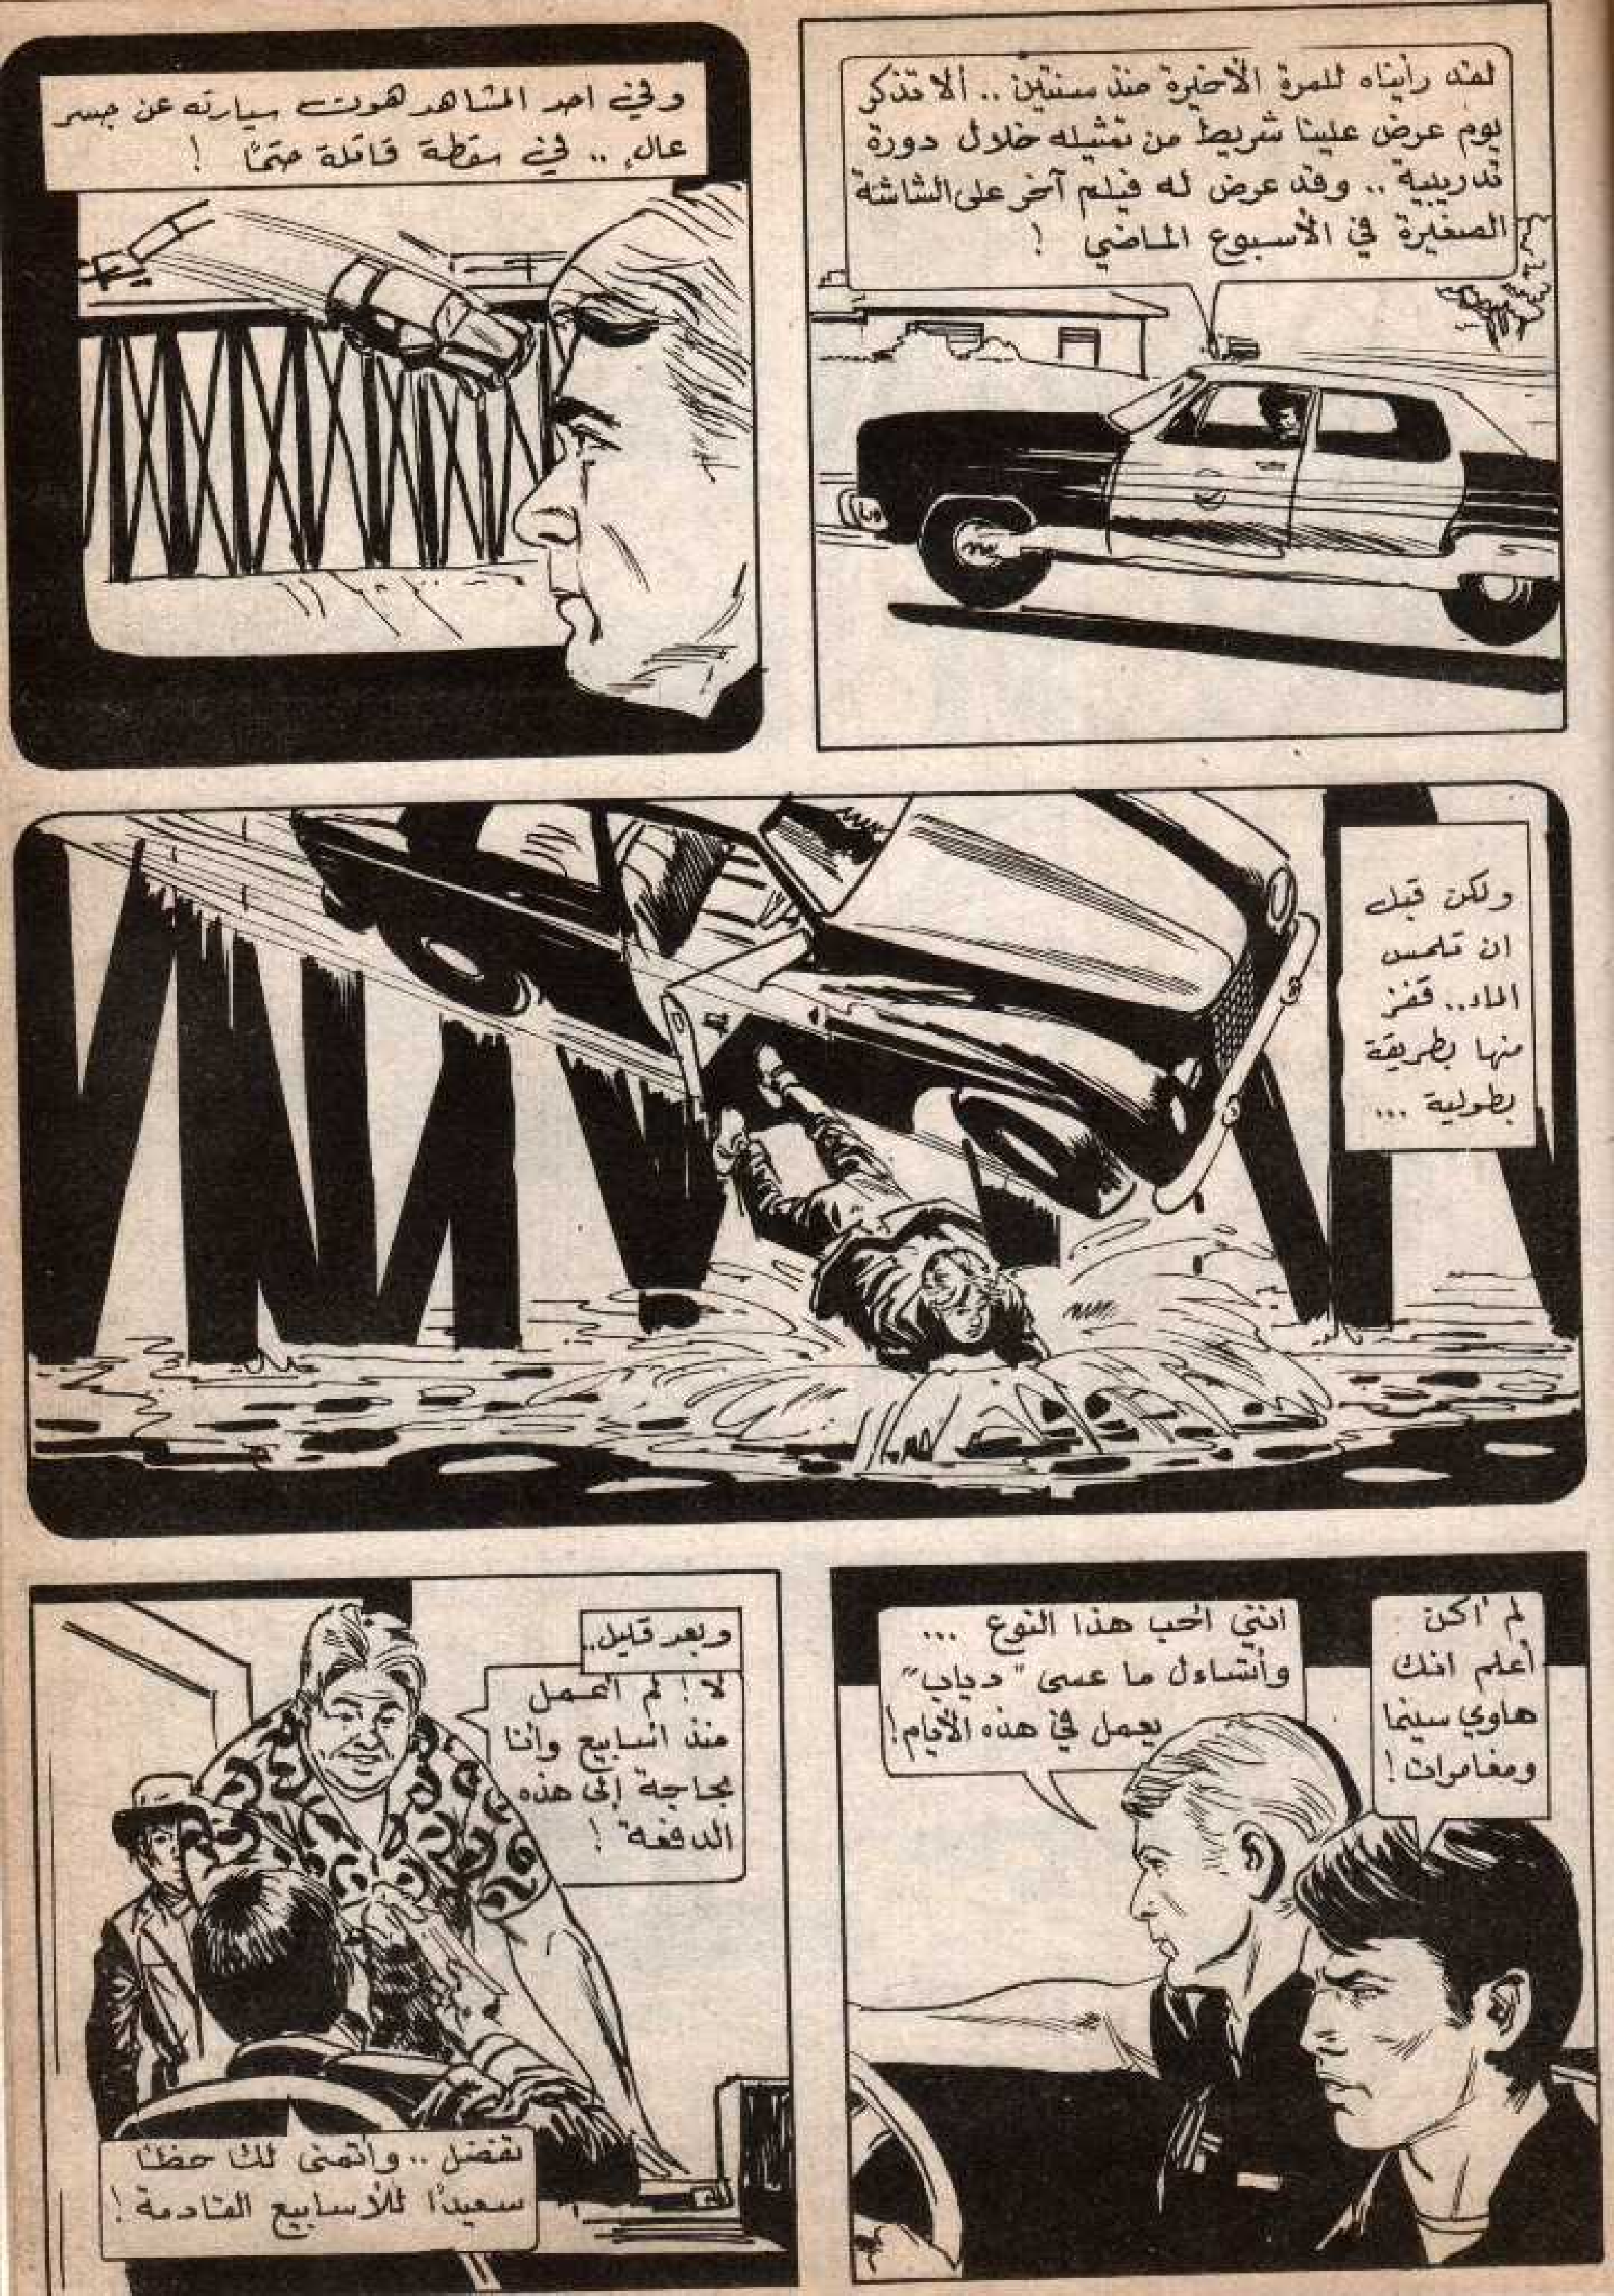 لقد رأيناه للمرة الأخيرة منذ سنتين .. ألا تذكر
يوم عرض علينا شريط من تمثيله خلال دورة
تدريبية .. وقد عرض له فيلم آخر على الشاشة
الصغيرة في الأسبوع الماضي !
وفي احد المشاهد هوت سيارته عن جسر
عالٍ .. في سقطة قاتلة حتمًا !
ولكن قبل
ان تلمس
الماء .. قفز
منها بطريقة
بطولية ...
لم اكن
أعلم انك
هاوي سينما
ومغامرات !
انني احب هذا النوع ...
وأتساءل ما عسى "دياب"
يعمل في هذه الأيام !
وبعد قليل ..
لا ! لم اعمل
منذ اسابيع وأنا
بحاجة إلى هذه
الدفعة !
تفضل .. وأتمنى لك حظا
سعيدًا للأسابيع القادمة !